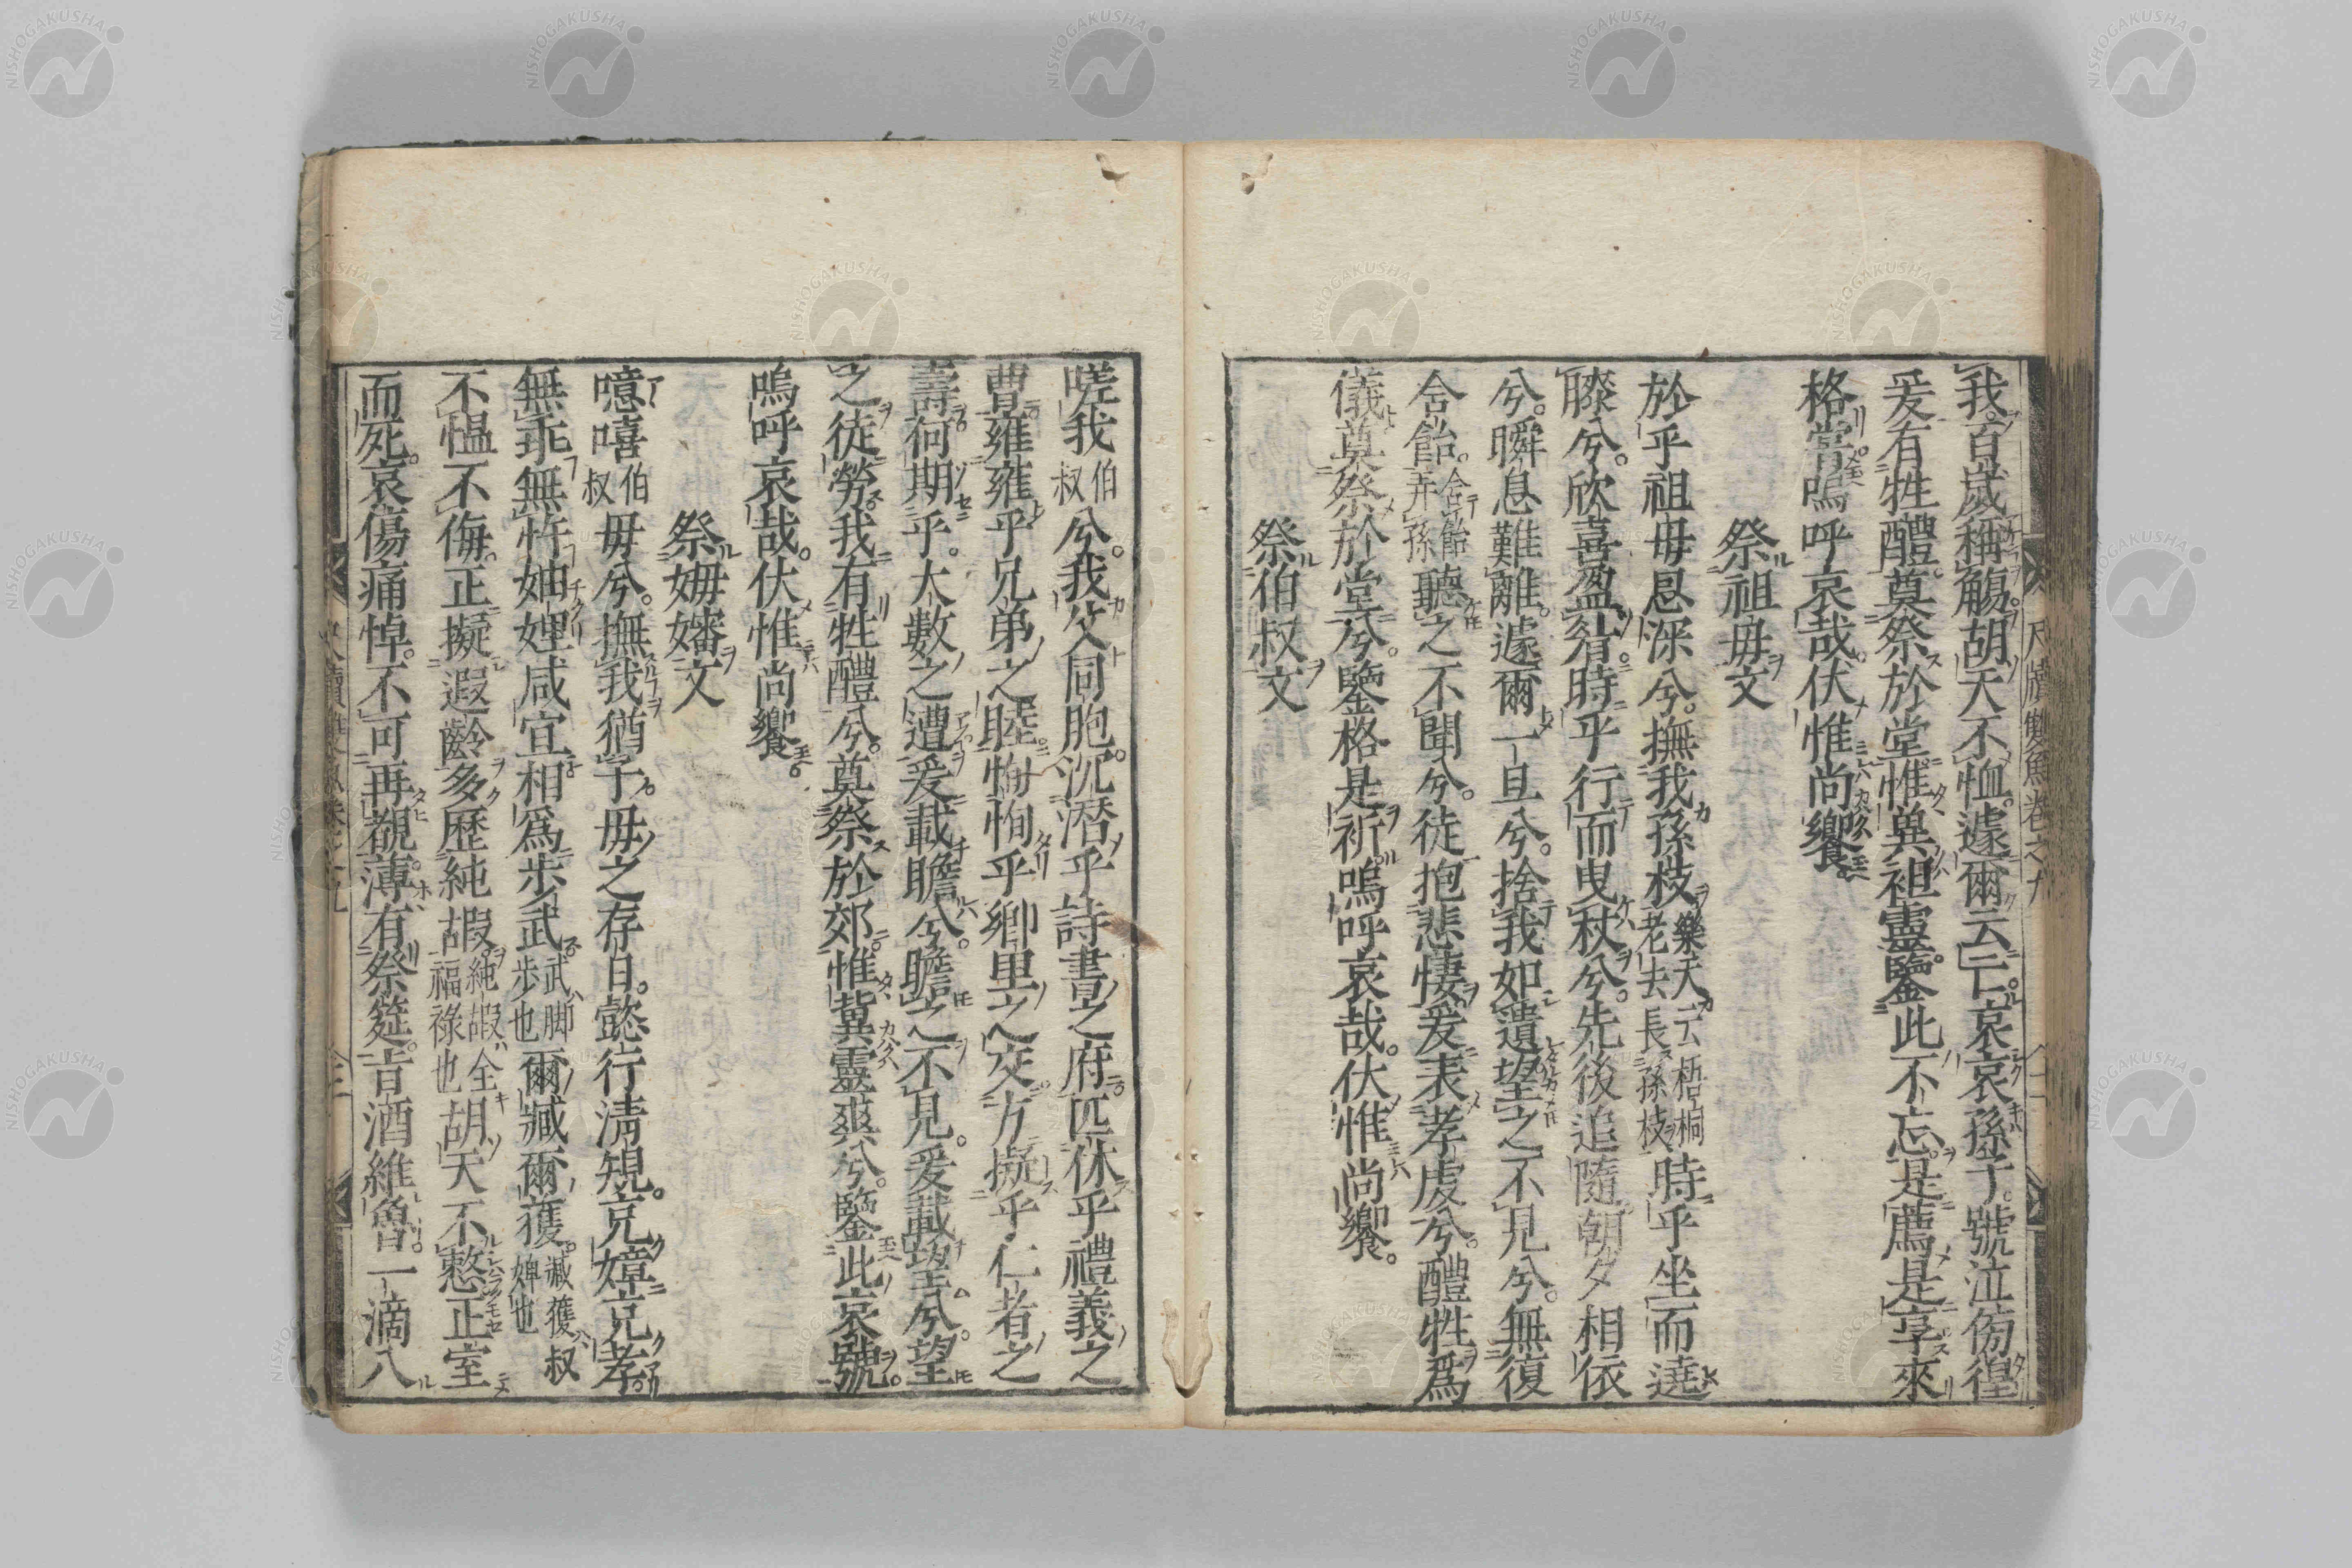 我百歳稱觴胡天不恤遽爾云亡哀哀孫子號泣徬徨
爰有牲醴奠祭於堂惟冀祖靈鑒此不忘是薦是享來
格嘗嗚呼哀哉伏惟尚饗
祭祖毋文
於乎祖毋恩深兮撫我孫枝樂天云梧桐老去長孫枝時乎坐而遶
膝兮欣喜盈時乎行而曳杖兮先後追隨朝夕相依
兮瞬息難離遽爾一旦兮捨我如遺望之不見兮無復
含飴含飴弄孫聽之不聞兮徒抱悲悽爰表孝虔兮醴牲爲
儀奠祭於堂兮鑒格是祈嗚呼哀哉伏惟尚饗
祭伯叔文
嗟我伯叔兮我父同胞沉潜乎詩書之府匹休乎禮義之
曹雍雍乎兄弟之睦恂恂乎鄉里之交方擬乎仁者之
壽何期乎大數之遭爰載瞻兮瞻之不見爰載望兮望
之徒勞我有牲醴兮奠祭於郊惟冀靈爽兮鑒此哀號
嗚呼哀哉伏惟尚饗
祭姆嬸文
噫嘻伯叔毋兮撫我猶子毋之存日懿行淸規克嫜克孝
無乖無忤妯娌咸宜相爲步武武脚步也爾臧爾獲臧獲婢也叔
不慍不侮正擬遐齡多歷純嘏純嘏全福祿也胡天不憖正室
而死哀傷痛悼不可再覩薄有祭筵旨酒維魯一滴八
尺牘雙魚卷之九